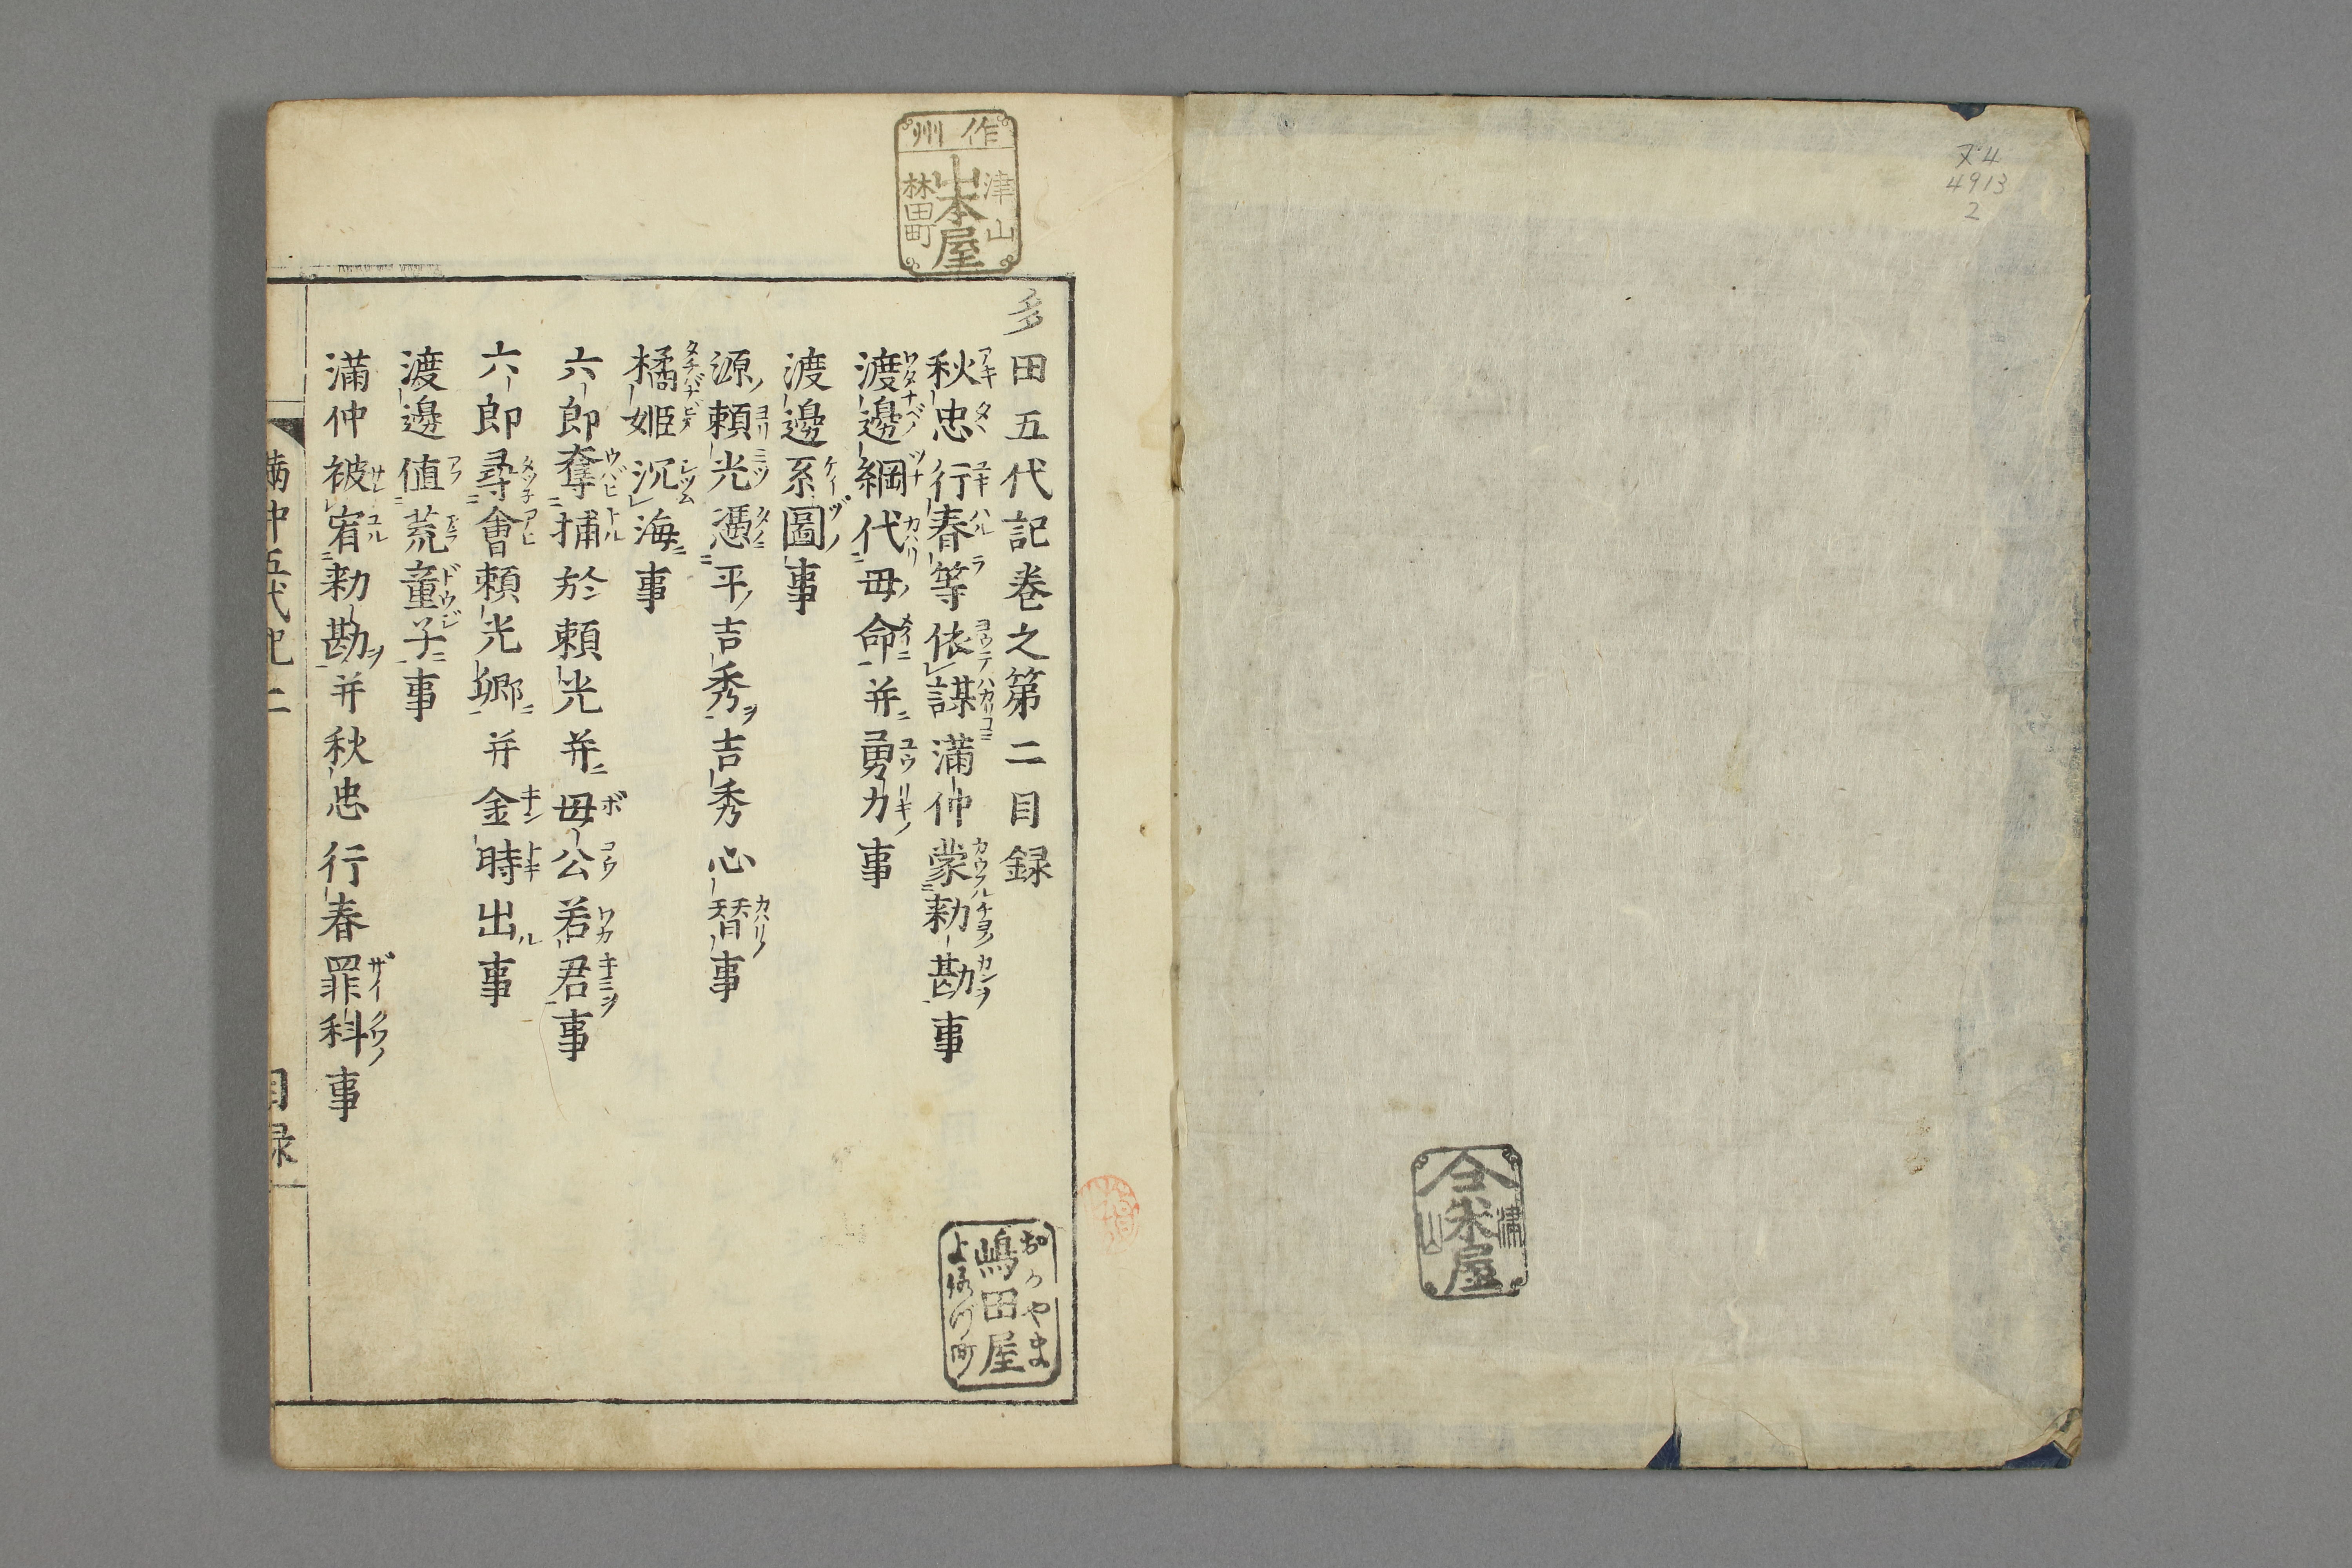 ヌ4
4913
2
合
米屋
津
山
作州
津山
山本屋
林田町
多田五代記巻之第二目録
秋忠行春等依謀満仲蒙勅勘事
渡邊綱代母命并勇力事
渡邊系圖事
源頼光憑平吉秀吉秀心替事
橘姫沉海事
六郎奪捕於頼光并母公若君事
六郎尋會頼光郷并金時出事
渡邊値荒童子事
満仲被宥勅勘并秋忠行春罪科事
満仲五代記二
目録
やま
嶋田屋
町